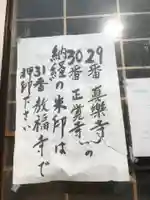 29番 真楽寺の
30番 正覚寺
納経の朱印は
31番教福寺で
押印下さい